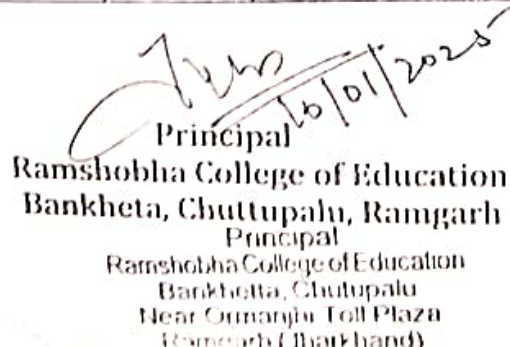 10/01/2025
Principal
Ramshobha College of Education
Bankheta, Chuttupalu, Ramgarh
Principal
Ramshobha College of Education
Bankhetta, Chutupalu
Near Ormanjhi Toll Plaza
Ramgarh (Jharkhand)